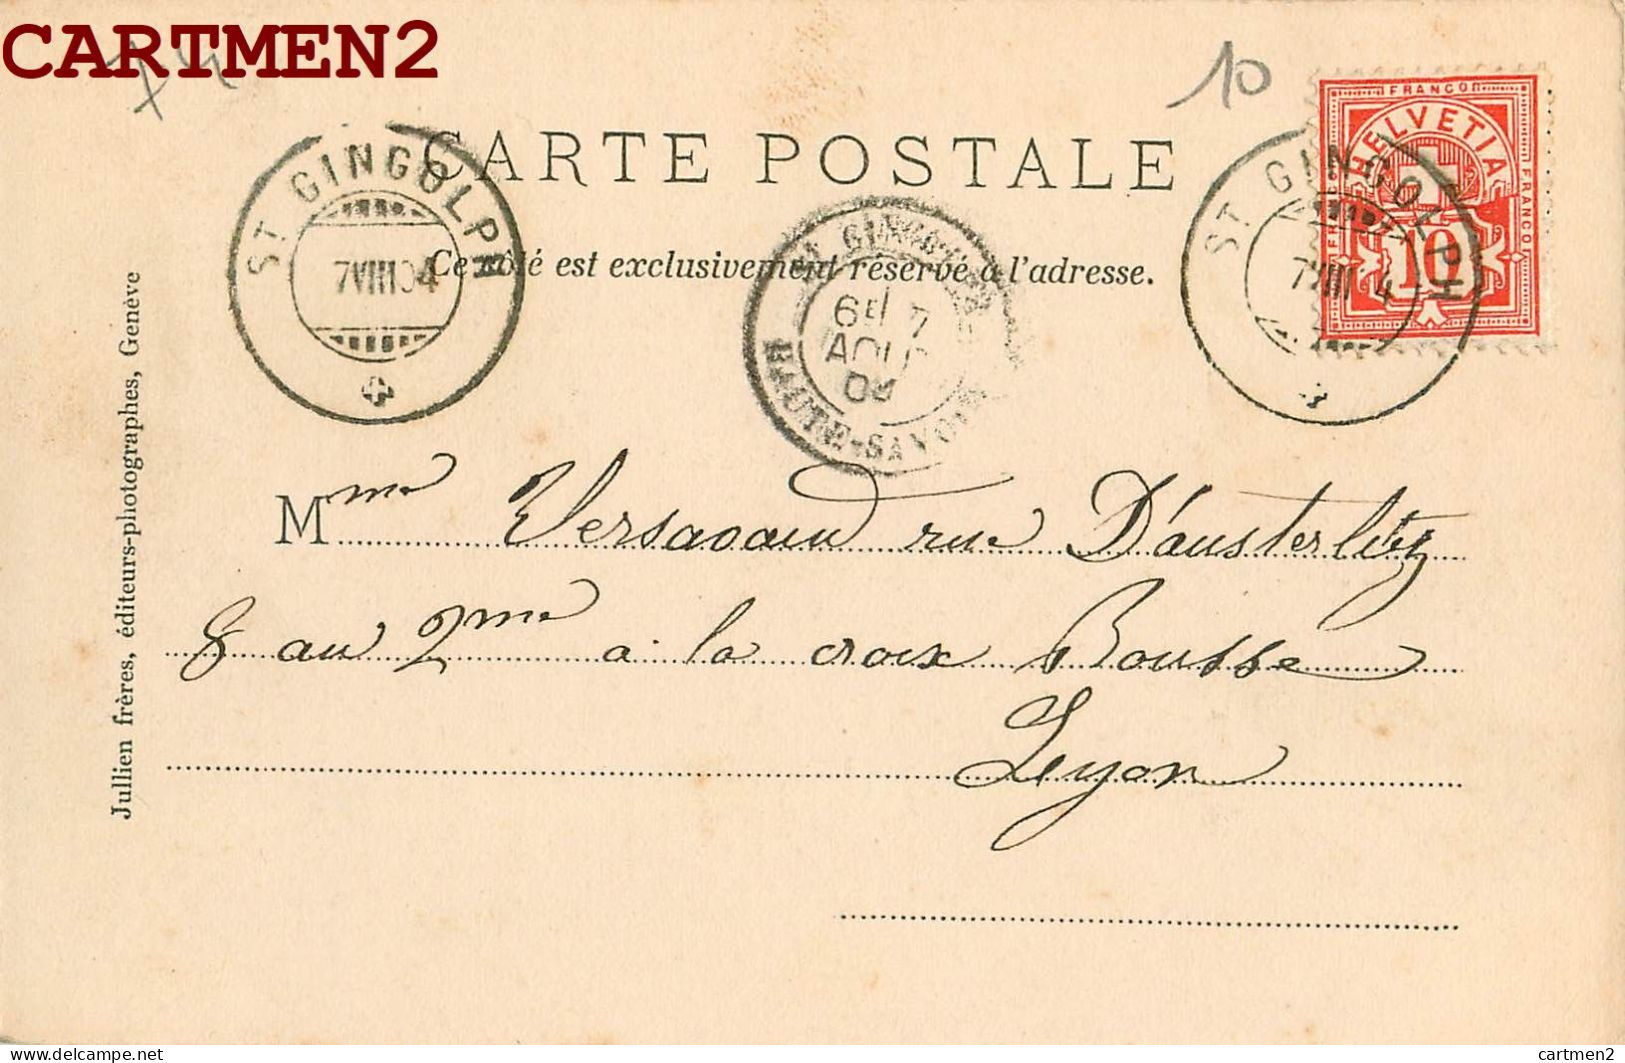 CARTMEN2
74
10
CARTE POSTALE
Ce côté est exclusivement réservé à l'adresse.
ST. GINGOLPH
7 VIII 04
ST GINGOLPH
6E 7
AOUT
HAUTE-SAVOIE
ST. GINGOLPH
7 VIII 4
FRANCO
HELVETIA
FRANCO
10
Julien frères, éditeurs-photographes, Genève
Mme rue D'austerlitz
8 au 2me a la croix Rousse
Lyon
https://www.delcampe.net
cartmen2